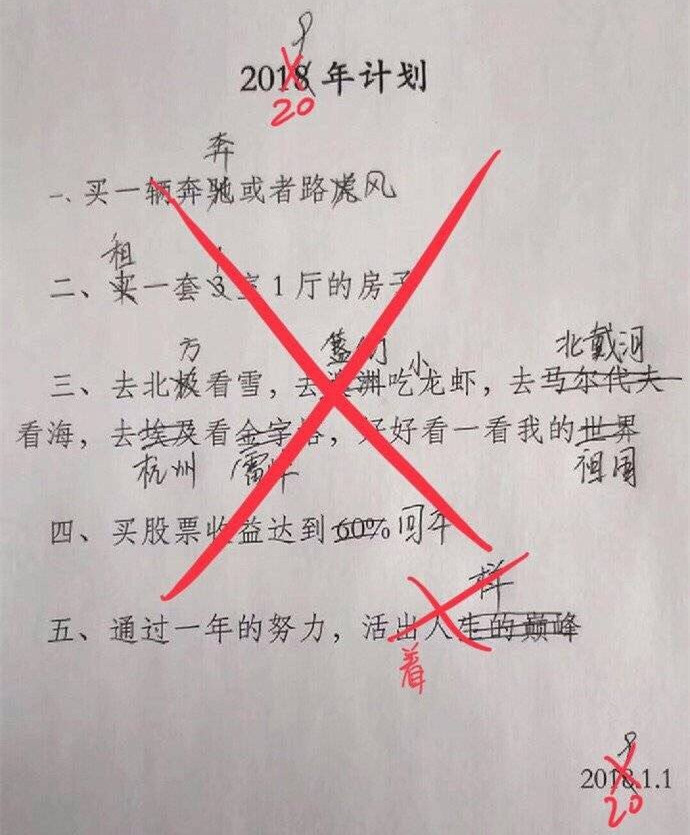 9
2018 年计划
20
奔
一、买一辆奔驰或者路虎风
租 1
二、买一套3室1厅的房子
方 盱眙 小 北戴河
三、去北极看雪，去澳洲吃龙虾，去马尔代夫
看海，去埃及看金字塔，好好看一看我的世界
杭州 雷峰 祖国
四、买股票收益达到 60% 回平
样
五、通过一年的努力，活出人生的巅峰
着
9
2018.1.1
20